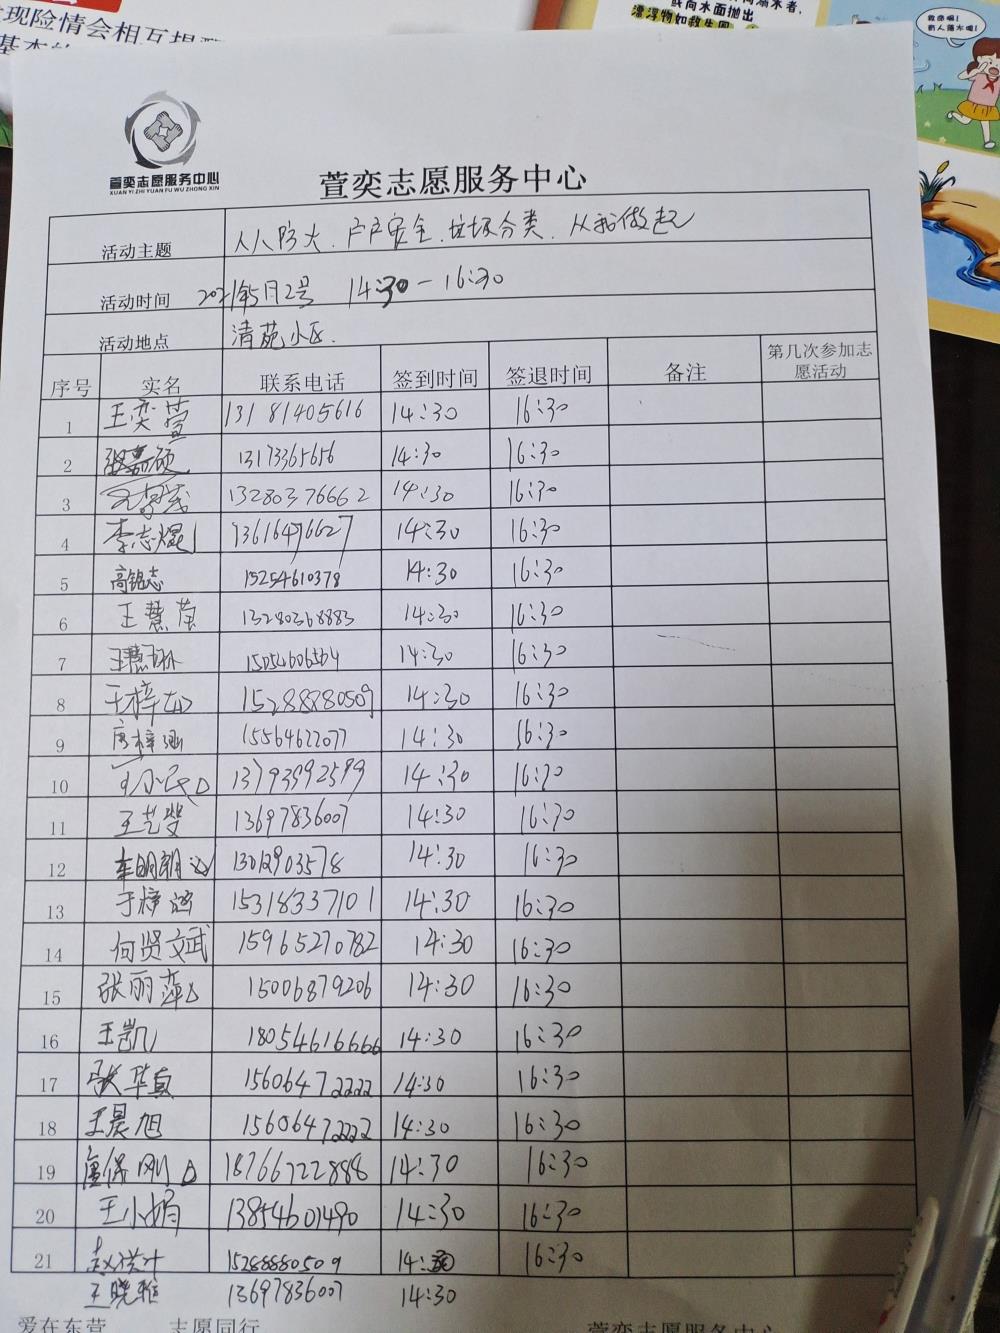 现险情会相互提醒
基本
或向水面抛出
漂浮物如救生圈
救命啊!
有人落水啦!
萱奕志愿服务中心
XUAN YI ZHI YUAN FU WU ZHONG XIN
萱奕志愿服务中心
活动主题 人人防火、户户安全、垃圾分类、从我做起
活动时间 2021年5月2号 14:30-16:30
活动地点 清苑小区.
序号 实名 联系电话 签到时间 签退时间 备注 第几次参加志愿活动
1 王奕萱 13181405616 14:30 16:30
2 张嘉硕 13173365656 14:30 16:30
3 13280376662 14:30 16:30
4 李志焜 13616496627 14:30 16:30
5 高锦志 15254610378 14:30 16:30
6 王慧莹 13280368883 14:30 16:30
7 王慧琳 15054606564 14:30 16:30
8 王梓 15288880509 14:30 16:30
9 唐梓涵 15564622077 14:30 16:30
10 13793992599 14:30 16:30
11 王艺斐 13697836007 14:30 16:30
12 车明朗 13012903578 14:30 16:30
13 于梓涵 15318337101 14:30 16:30
14 何贤文武 15965270782 14:30 16:30
15 张丽萍 15006879206 14:30 16:30
16 王凯 18054616666 14:30 16:30
17 张华真 15606472222 14:30 16:30
18 王晨旭 15606472222 14:30 16:30
19 唐保刚 18766722888 14:30 16:30
20 王小娟 13854601490 14:30 16:30
21 15288880509 14:30 16:30
王晓雅 13697836007 14:30
爱在东营 志愿同行 萱奕志愿服务中心